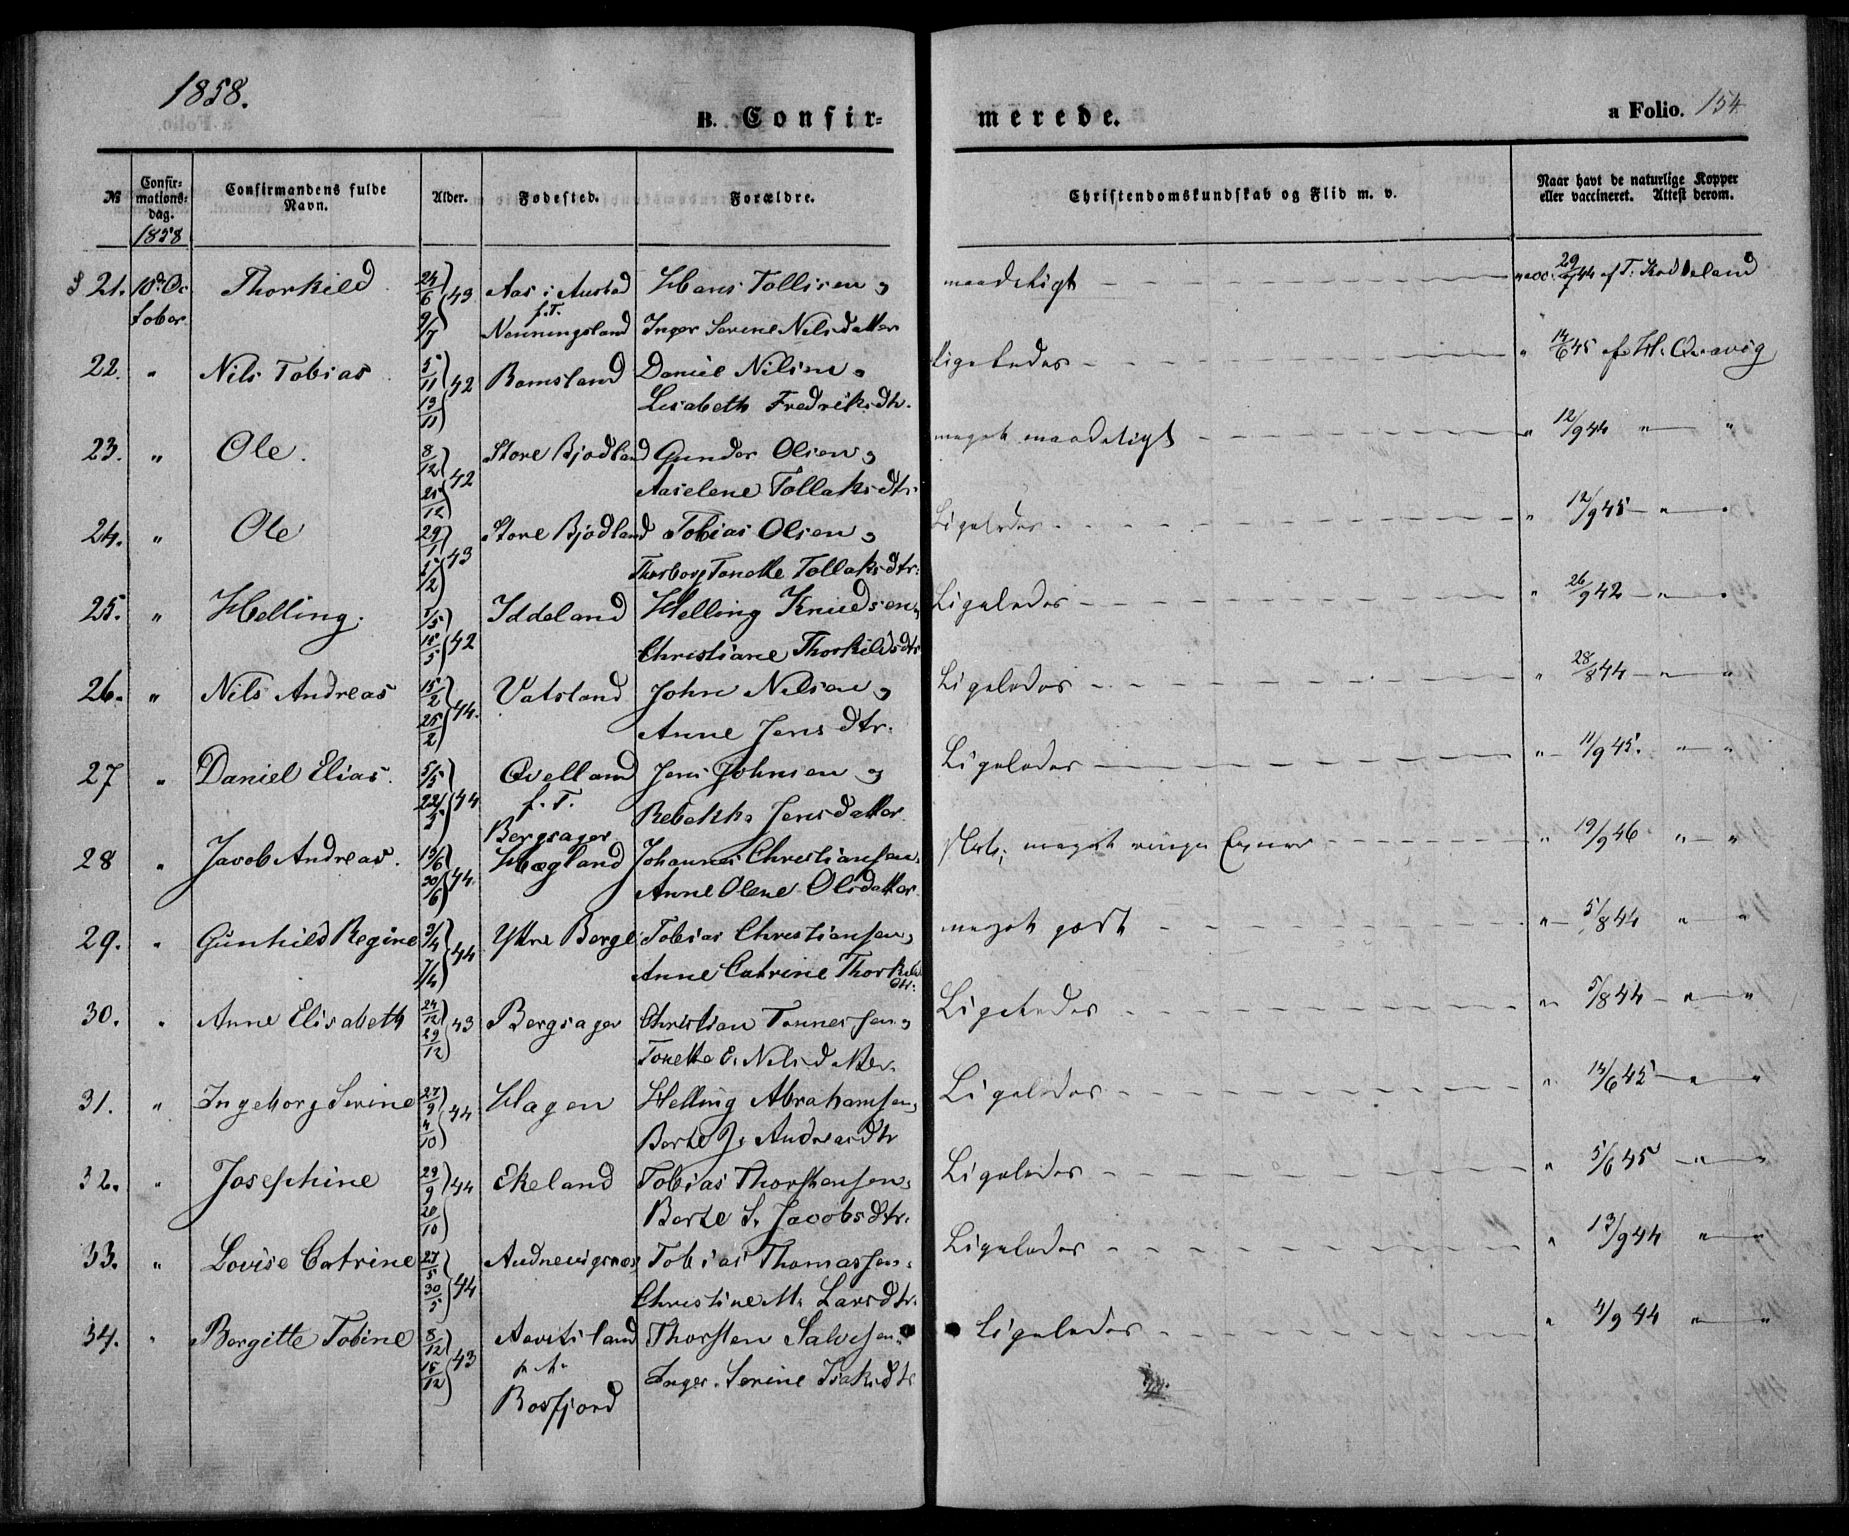 1858.
B. Confir-
merede.
a Folio. 154
№
Confir-
mations-
dag.
1858
Confirmandens fulde
Navn.
Alder.
Fødested.
Forældre.
Christendomskundskab og Flid m. v.
Naar havt de naturlige Kopper
eller vaccineret. Attest derom.
21. 10de Oc- Thorkild 24/6 43 Aas i Austad Hans Tollisen og maadeligt vacc. 29/7 44 af T. Koddeland
tober 9/7 f.T. Nenningsland Inger Serine Nilsdatter
22. " Nils Tobias 5/11 42 Bamsland Daniel Nilsen og ligeledes " 14/6 45 af H. Qvavig
13/11 Lisabeth Fredriksdtr.
23. " Ole. 8/12 42 Store Bjodland Gunder Olsen og meget maadeligt " 12/9 44 " "
25/12 Aaselene Tollaksdtr.
24. " Ole 29/1 43 Store Bjodland Tobias Olsen og Ligeledes " 12/9 45 " "
/2 Thorborg Tonette Tollaksdtr.
25. " Helling. 1/5 42 Iddeland Helling Knudsen Ligeledes " 26/9 42 " "
15/5 Christiane Thorkildsdtr
26. " Nils Andreas 15/2 44. Vatsland John Nilsen og Ligeledes " 28/8 44 " "
25/2 Anne Jensdtr.
27 " Daniel Elias. 5/5 44 Qvelland Jens Johnsen og Ligeledes " 11/9 45. " "
22/5 f.T. Bergsager Rebekka Jensdatter
28 " Jacob Andreas. 13/6 44. Hægland Johannes Christiansen slet; meget ringe Evner " 19/9 46 " "
30/6 Anne Olene Olsdatter
29. " Gunhild Regine 3/4 44 Yttre Berge Tobias Christiansen, meget godt " 5/8 44 " "
7/4 Anne Catrine Thorkildsdtr.
30. " Anne Elisabeth 24/12 43 Bergsager Christian Tønnessen og Ligeledes " 5/8 44 " "
29/12 Tonette E. Nilsdatter.
31. " Ingeborg Serine 27/9 44 Hagen Helling Abrahamsen, Ligeledes " 14/6 45 " "
4/10 Berte J. Andreasdtr
32. " Josephine 29/9 44 Ekeland Tobias Thorstensen, Ligeledes " 5/6 45 " "
20/10 Berte S. Jacobsdtr.
33. " Lovise Catrine 27/5 44 Audnevigsnæs Tobias Thomassen, Ligeledes " 13/9 44 " "
30/5 Christine M. Larsdtr.
34. " Bergitte Tobine 8/12 43 Aavitsland Thorsten Salvesen Ligeledes " 4/9 44 " "
15/12 Inger Serine Isaksdtr
Rosfjord